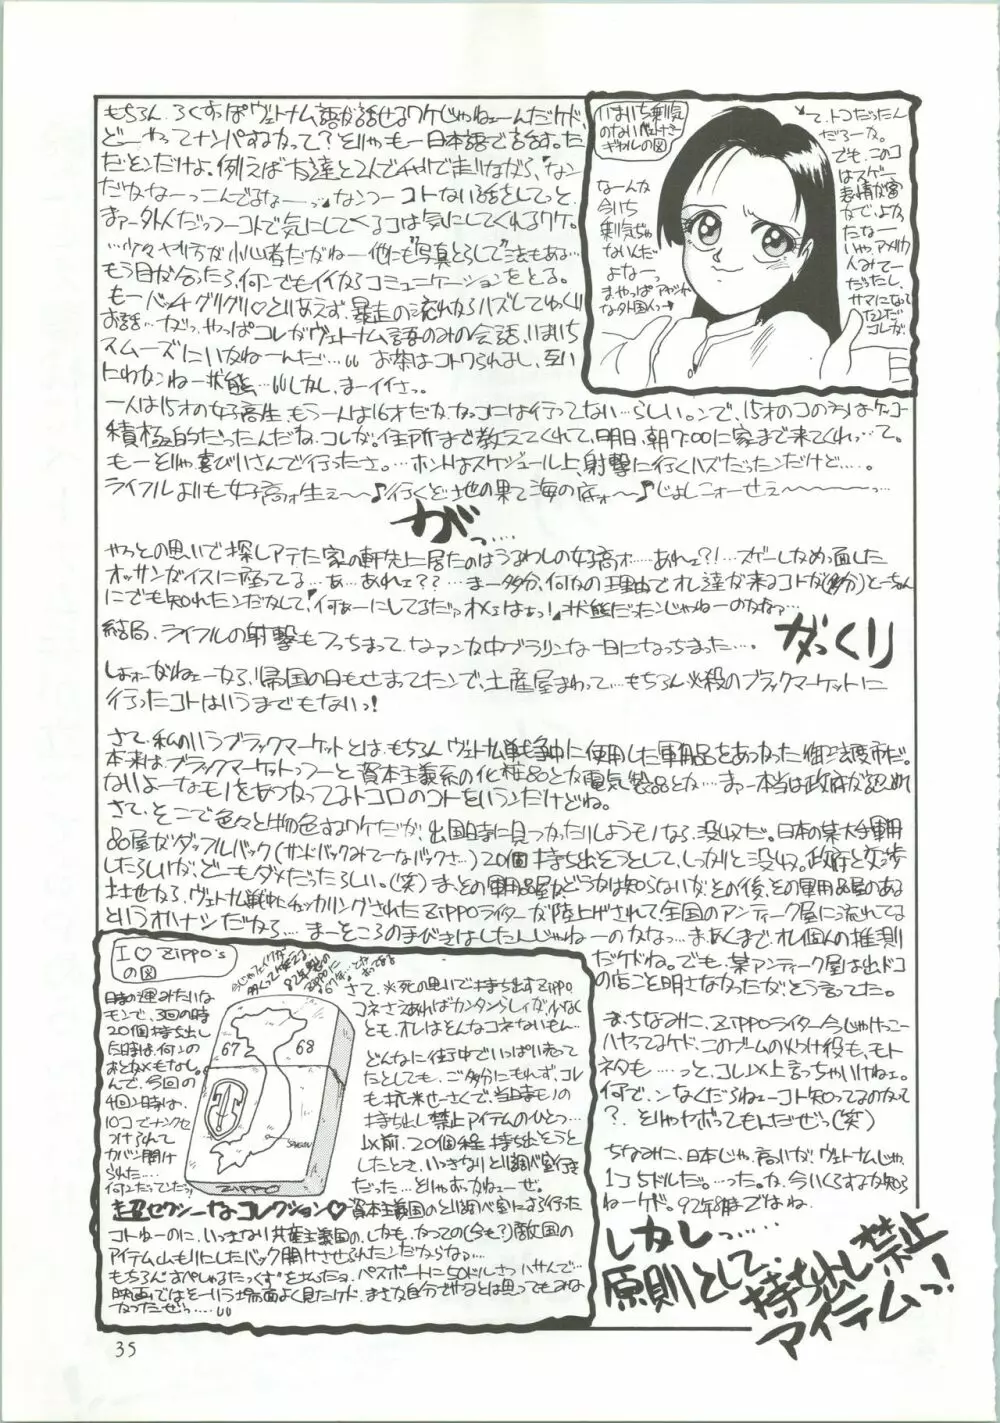 もちろん、ろくすっぽヴェトナム語が話せるワケじゃねェーんだケド、
どーやってナンパするかって？そりゃもー日本語で話す。た
だそンだけよ。例えば友達と2人でチャリで走りながら、「なん
だかなーっこんでるなー…」なんつーコトない話をしてっと、
まァー外人だっつーコトで気にしてくるコは気にしてくれるワケ。
…少々ヤリ方が小心者だがねー 他にも"写真とらして"ってもある…
もう目が合ったら、何でもイイからコミュニケーションをとる。
もーバッチグリグリ♡とりあえず、暴走の流れからハズしてゆっくり
お話…だがっ、やっぱコレがヴェトナム語のみの会話、いまいち
スムーズにいかねーんだ…〃 お茶はコトワられるし、互い
にわかんねー状態…〃しかし、まーイイさ。
一人は15才の女子高生、もう一人は16才だがガッコには行ってない…らしい。ンで、15才のコの方はケッコー
積極的だったんだね、コレが。住所まで教えてくれて、明日、朝7:00に家まで来てくれ…って。
もーそりゃ、喜びいさんで行ったさ。…ホントはスケジュール上、射撃に行くハズだったンだけど…。
ライフルよりも女子高ォ生ェ〜〜♪行くぞ地の果て海の底ォ〜♪じょしこォーせェ〜〜〜〜…
がっ…
やっとの思いで探しアテた家の軒先に居たのはうるわしの女子高ォ…あれェ?!…スゲーしかめっ面した
オッサンがイスに座ってる…あ…あれェ??…まー多分、何かの理由でオレ達が来るコトが(多分)とーちゃん
にでも知れたンだかして、「何ぁーにしてるだァオメェはぁっ!」状態だったンじゃねーのかなァ…
がっくり
結局、ライフルの射撃もフっちまって、なァンか中ブラリンな一日になっちまった…。
しょォーがねェーから、帰国の日もせまってたンで、土産屋まわって…もちろん必殺のブラックマーケットに
行ったコトはいうまでもないっ!
さて、私のいうブラックマーケットとは、もちろんヴェトナム戦争中に使用した軍用品をあつかった御法度市だ。
本来はブラックマーケットっつーと資本主義系の化粧品とか電気製品とか…まァー本当は政府が認めれ
ないよーなモノをあつかってるトコロのコトをいうンだけどね。
さて、そこで色々と物色するワケだが、出国時に見つかったりしようモノなら、没収だ。日本の某大手軍用
品屋がダッフルバック(サンドバックみてーなバックさ…)20個持ち出そうとして、しっかりと没収。政府と交渉
したらしいが、どーもダメだったらしい。(笑)まァその軍用品屋かどうかは知らないが、その後、その軍用品屋のある
土地から、ヴェトナム戦中にチェッカリングされたZIPPOライターが陸上げされて、全国のアンティーク屋に流れてる
というオハナシだから…まーそこらの手びきはしたんじゃねーのかなっ…まあくまで、オレ個人の推測
だケドね。でも、某アンティーク屋は出ドコ
の店ごと明さなかったが、そう言ってた。
ま、ちなみに、ZIPPOライター今じゃけっこー
ハヤってるケド、このブームの火つけ役も、モト
ネタも……っと、コレ以上言っちゃいけねェ。
何でンなくだらねェーコト知ってるのかって
？そりゃヤボってもんだぜっ(笑)
ちなみに、日本じゃ、高いが、ヴェトナムじゃ、
1コ5ドルだ。…った。か、今いくらするか知ら
ねーケド。92年8月ではね。
しかしっ……
原則として、持ち出し禁止
アイテムっ!
いまいち刺気
のないヴェトナミー
ギャルの図
なーんか
今いち
刺気ぢゃ
ないんだ
よなーっ
まやっぱアヤシげ
な外国人っ→
って、トコだったん
だろーな。
でも、このコ
はスゲー
表情が豊
かで、よか
たなー
いゃアメリカ
人みてー
だったし、
サマになって
たンだ
コレが。
I♡ZIPPO's
の図
時の運みたいな
モンで、3回の時
20個持ち出し
た時は、何ンの
おとがめもなし。
んで、今回の
4回ン時は、
10コでナンクセ
つけられて
カバン開け
られた…
何ンだってンだっ!
67
68
SAIGON
ZIPPO
超セクシーなコレクション♡
さて、※死の思いで持ち出すZIPPO
コネさえあればカンタンらしィが、少なく
とも、オレはそんなコネないもん…
どんなに街中でいっぱい売って
たとしても、ご多分にもれず、コレ
も抗米せーさくで、当時モノの
持ち出し禁止アイテムのひとつ…
以前、20個程持ち出そうと
したとき、いっきなりとり調べ室行き
だった…そりゃおっかねェーぜ。
資本主義国のとり調べ室にすら行った
コトねーのに、いっきなり共産主義国の、しかも、かつての(今も?)敵国の
アイテム山もりにしたバック開けさせられたンだからなァ…
もちろん"すぺしゃるたっくす"を払ったョ。パスポートに50ドルさつハサんで…
映画ではそーいう場面よく見たケド、まさか自分でやるとは思ってもみな
かったぜっ…〃
35